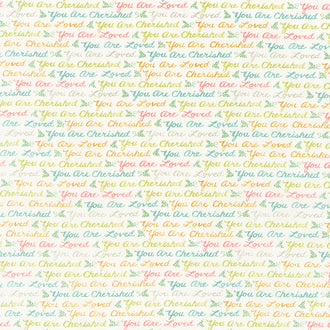 You Are Loved You Are Cherished
You Are Cherished You Are Loved You Are
You Are Loved You Are Cherished You Are Loved
You Are Cherished You Are Loved You Are Cherished
You Are Loved You Are Cherished You Are Loved
You Are Cherished You Are Loved You Are Cherished
You Are Loved You Are Cherished You Are Loved
You Are Cherished You Are Loved You Are Cherished
You Are Loved You Are Cherished You Are Loved
You Are Cherished You Are Loved You Are Cherished
You Are Loved You Are Cherished You Are Loved
You Are Cherished You Are Loved You Are Cherished
You Are Loved You Are Cherished You Are Loved
You Are Cherished You Are Loved You Are Cherished
You Are Loved You Are Cherished You Are Loved
You Are Cherished You Are Loved You Are Cherished
You Are Loved You Are Cherished You Are Loved
You Are Cherished You Are Loved You Are Cherished
You Are Loved You Are Cherished You Are Loved
You Are Cherished You Are Loved You Are Cherished
You Are Loved You Are Cherished You Are Loved
You Are Cherished You Are Loved You Are Cherished
You Are Loved You Are Cherished You Are Loved
You Are Cherished You Are Loved You Are Cherished
You Are Loved You Are Cherished You Are Loved
You Are Cherished You Are Loved You Are Cherished
You Are Loved You Are Cherished You Are Loved